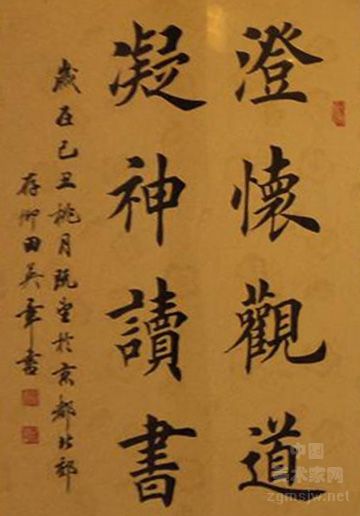 澄懷觀道
凝神讀書
歲在己丑桃月既望於京都北郊
存卿田英章書
中国
美术家网
zgmsjw.net